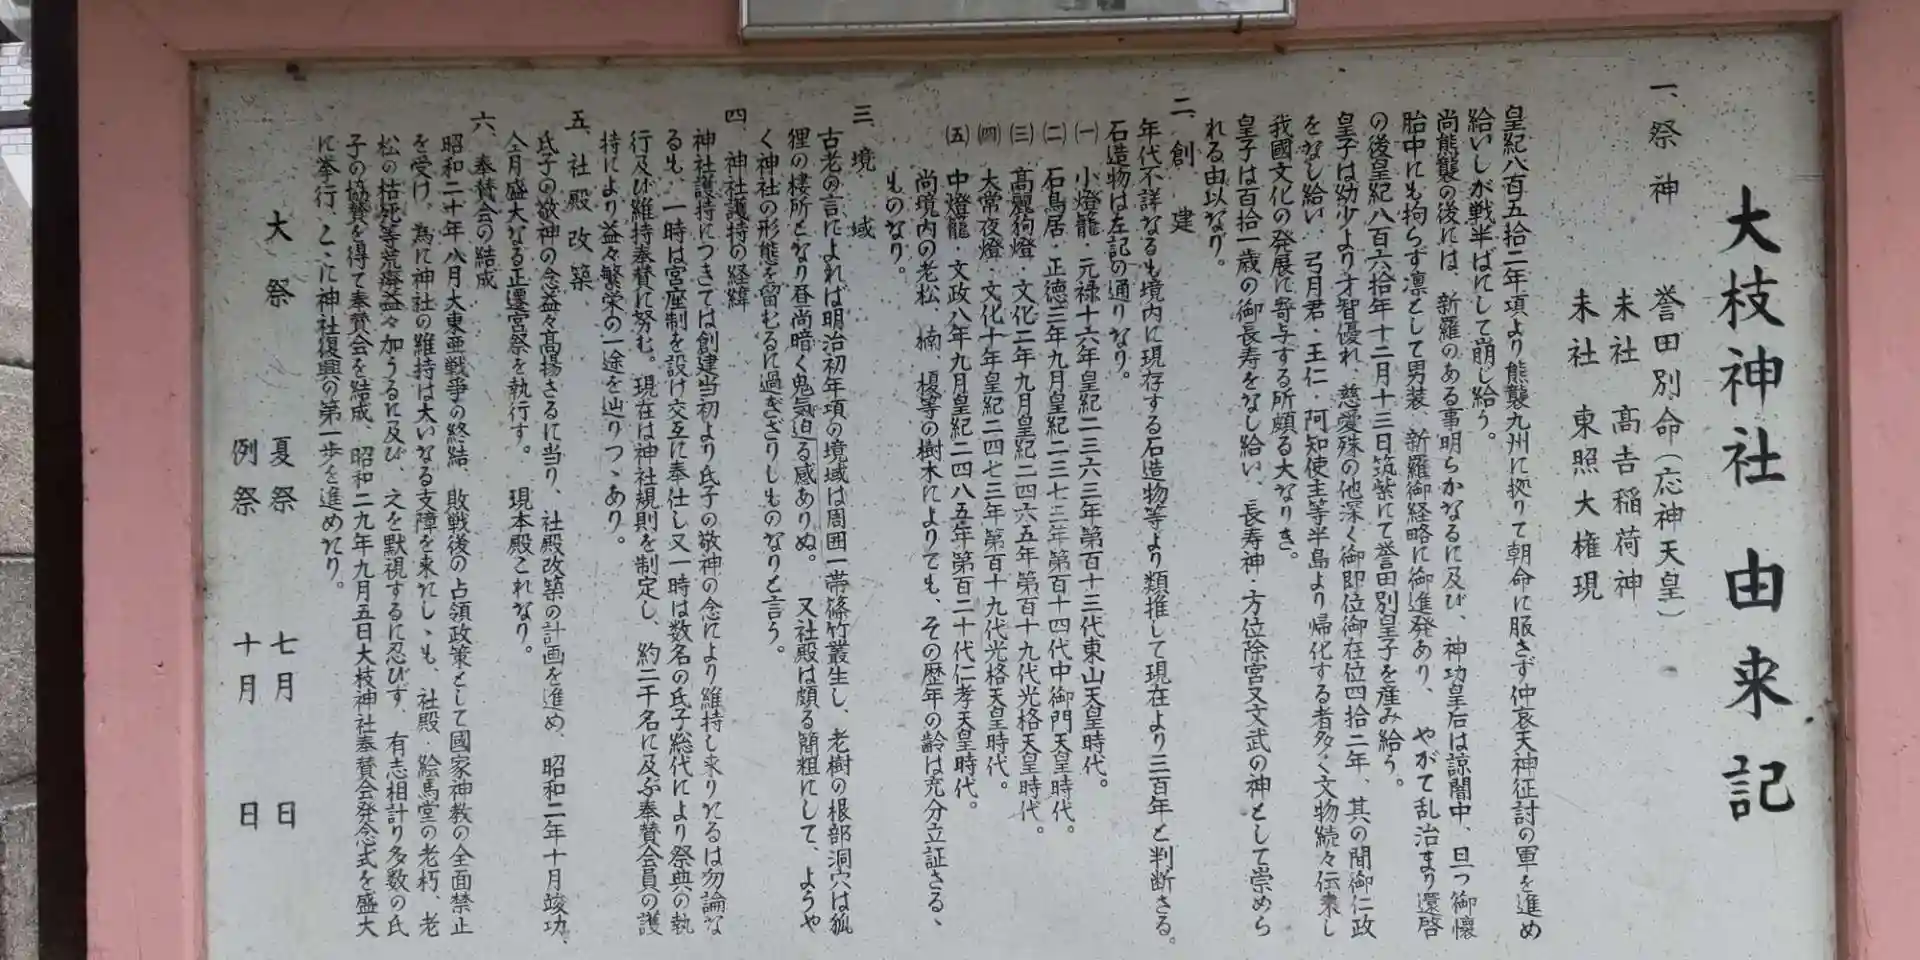 大枝神社由来記
一、祭神　誉田別命（応神天皇）
末社　高吉稲荷神
末社　東照大権現
皇紀八百五拾二年項より熊襲九州に拠りて朝命に服さず仲哀天神征討の軍を進め
給いしが戦半ばにして崩し給う。
尚熊襲の後には、新羅のある事明らかなるに及び、神功皇后は諒闇中、旦つ御懐
胎中にも拘らず凛として男装、新羅御経略に御進発あり、やがて乱治まり還啓
の後皇紀八百六拾年十二月十三日筑紫にて誉田別皇子を産み給う。
皇子は幼少より才智優れ、慈愛殊の他深く御即位御在位四拾二年、其の間御仁政
をなし給い、弓月君・王仁・阿知使主等半島より帰化する者多く文物続々伝来し
我國文化の発展に寄与する所頗る大なりき。
皇子は百拾一歳の御長寿をなし給い、長寿神・方位除宮又文武の神として崇めら
れる由以なり。
二、創建
年代不詳なるも境内に現存する石造物等より類推して現在より三百年と判断さる。
石造物は左記の通りなり。
㈠　小燈籠・元禄十六年皇紀二三六三年第百十三代東山天皇時代。
㈡　石鳥居・正徳三年九月皇紀二三七三年第百十四代中御門天皇時代。
㈢　高麗狗燈・文化二年九月皇紀二四六五年第百十九代光格天皇時代。
㈣　大常夜燈・文化十年皇紀二四七三年第百十九代光格天皇時代。
㈤　中燈籠・文政八年九月皇紀二四八五年第百二十代仁孝天皇時代。
尚境内の老松、楠、榎等の樹木によりても、その歴年の齢は充分立証さる、
ものなり。
三、境域
古老の言によれば明治初年項の境域は周囲一帯篠竹叢生し、老樹の根部洞穴は狐
狸の棲所となり昼尚暗く鬼気迫る感ありぬ。又社殿は頗る簡粗にして、ようや
く神社の形態を留むるに過ぎざりしものなりと言う。
四、神社護持の経緯
神社護持につきては創建当初より氏子の敬神の念により維持し来りたるは勿論な
るも、一時は宮座制を設け交互に奉仕し又一時は数名の氏子総代により祭典の執
行及び維持奉賛に努む。現在は神社規則を制定し、約二千名に及ぶ奉賛会員の護
持により益々繁栄の一途を辿りつゝあり。
五、社殿改築
氏子の敬神の念益々高揚さるに当り、社殿改築の計画を進め、昭和二年十月竣功、
仝月盛大なる正遷宮祭を執行す。現本殿これなり。
六、奉賛会の結成
昭和二十年八月大東亜戦争の終結、敗戦後の占領政策として國家神教の全面禁止
を受け、為に神社の維持は大いなる支障を来たしゝも、社殿・絵馬堂の老朽、老
松の枯死等荒廃益々加うるに及び、之を黙視するに忍びず、有志相計り多数の氏
子の協賛を得て奉賛会を結成、昭和二九年九月五日大枝神社奉賛会発念式を盛大
に挙行、こゝに神社復興の第一歩を進めたり。
大祭　夏祭　七月　日
例祭　十月　日